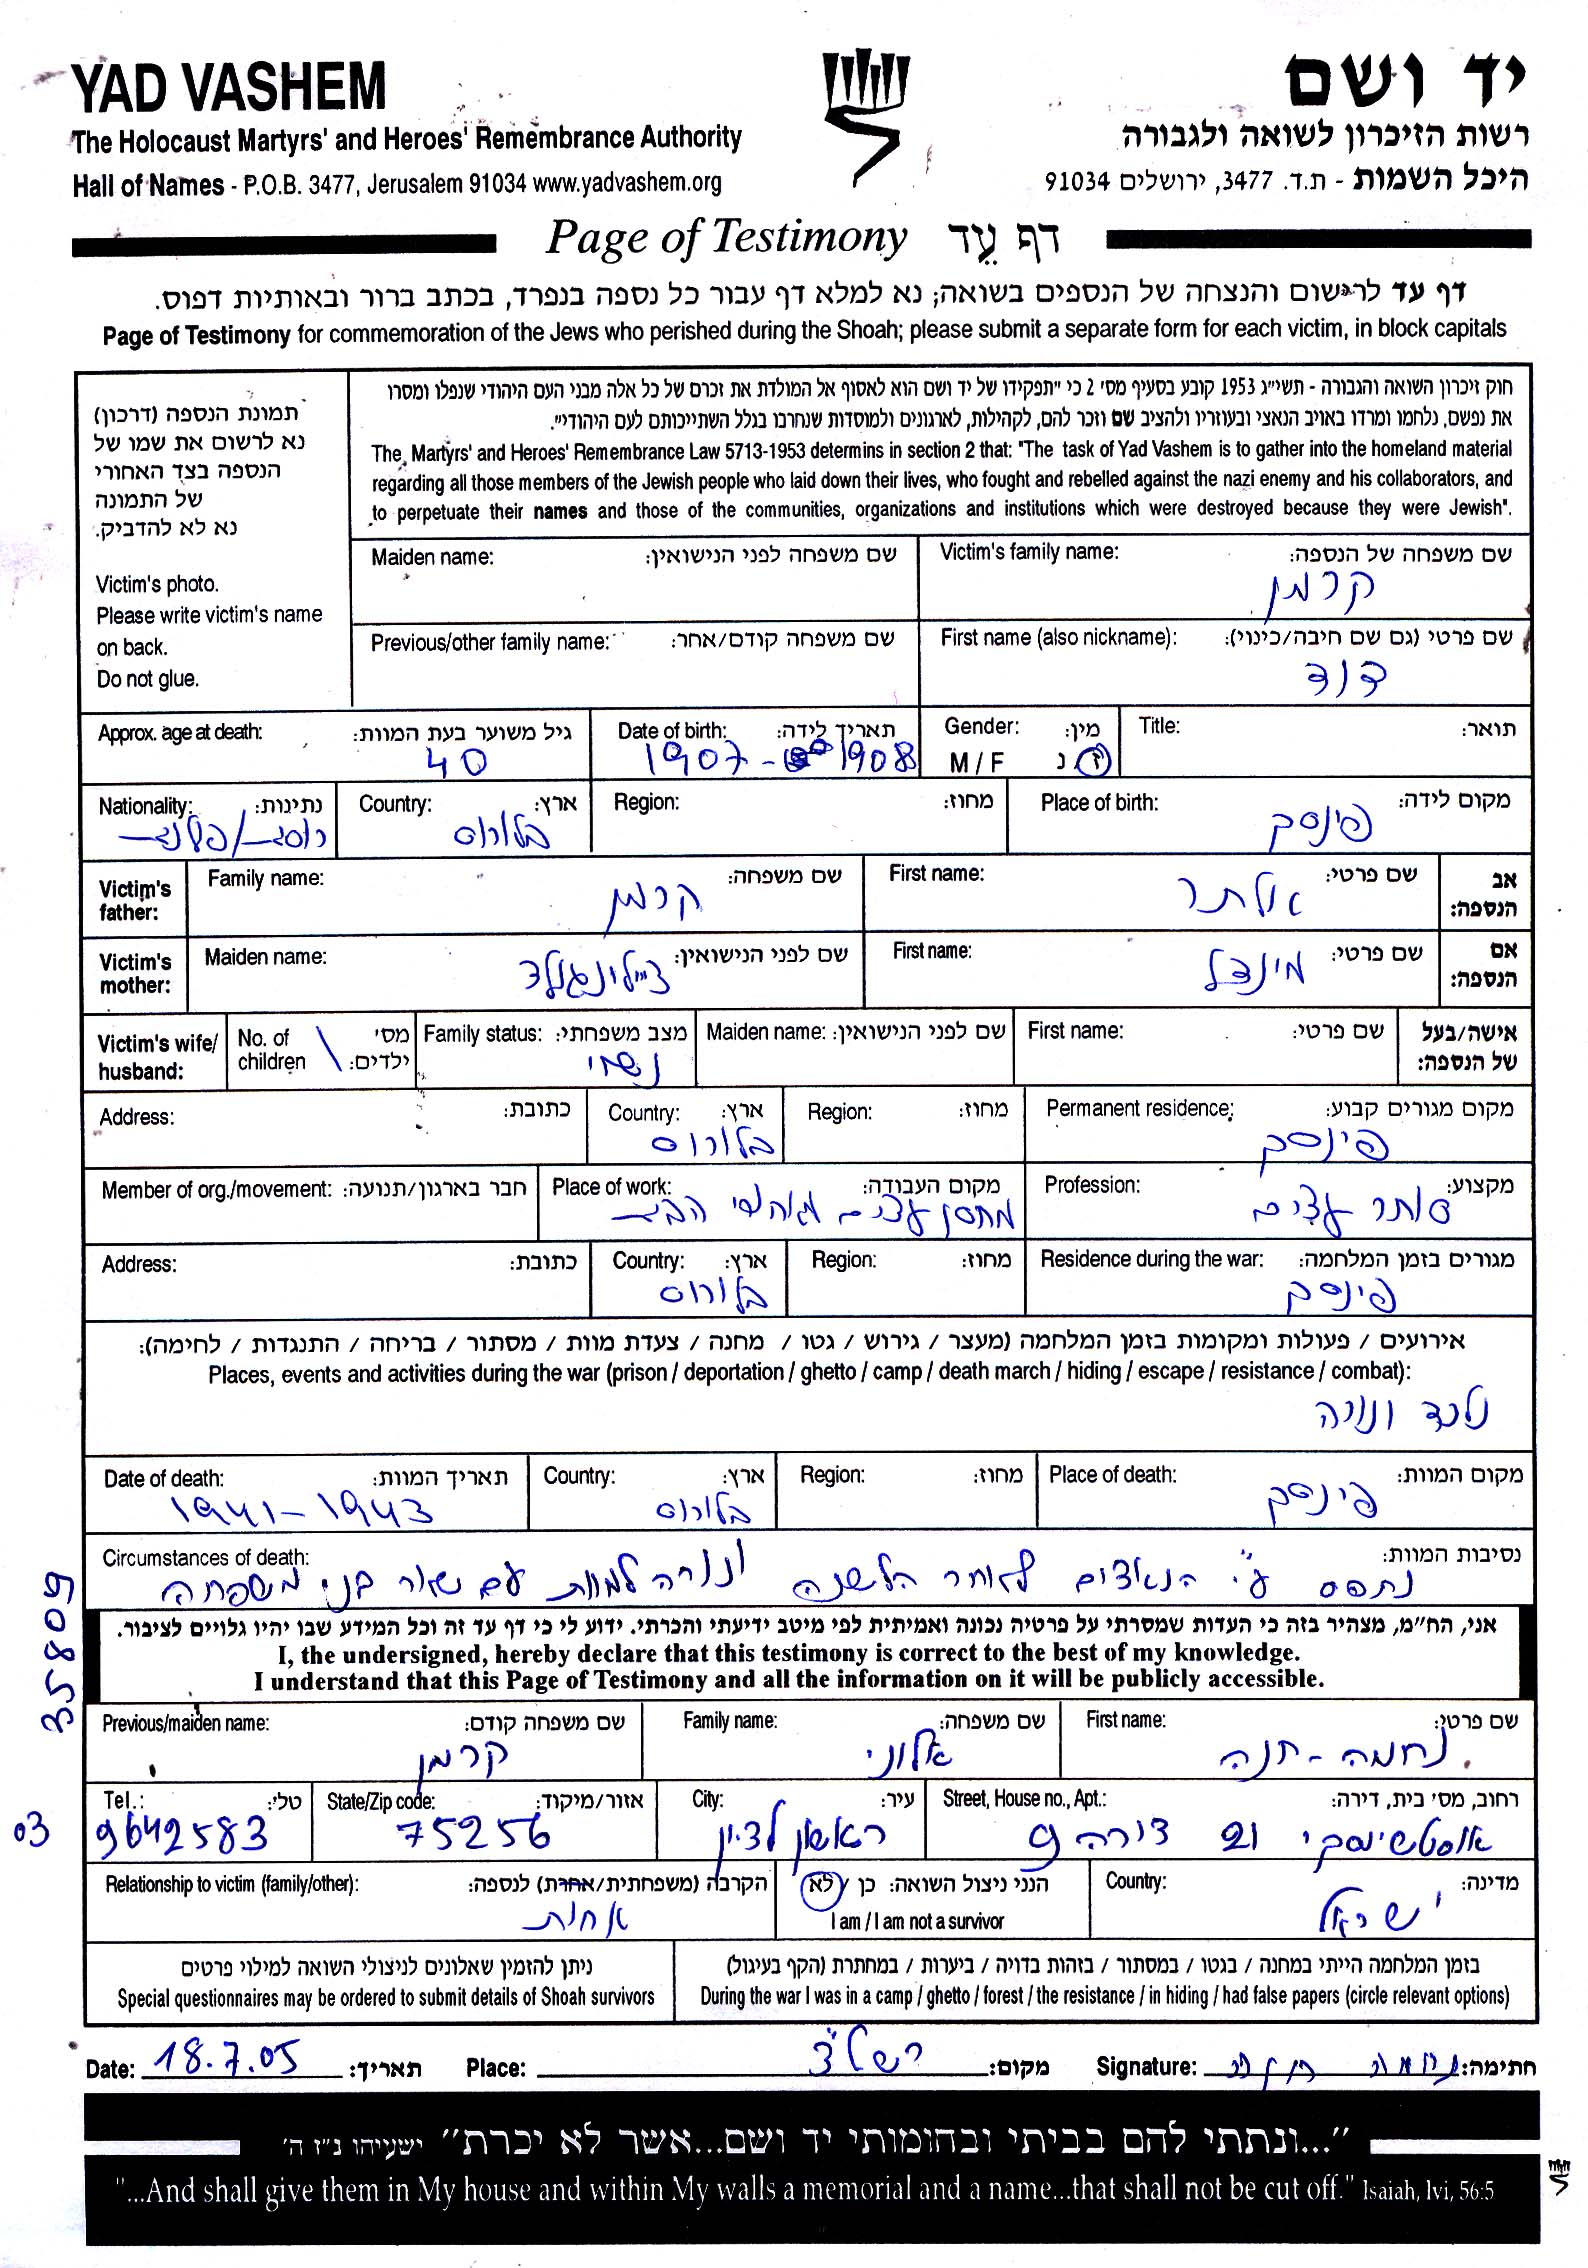 YAD VASHEM
The Holocaust Martyrs' and Heroes' Remembrance Authority
Hall of Names - P.O.B. 3477, Jerusalem 91034 www.yadvashem.org
יד ושם
רשות הזיכרון לשואה ולגבורה
היכל השמות - ת.ד. 3477, ירושלים 91034
Page of Testimony דף עֵד
דף עד לרישום והנצחה של הנספים בשואה; נא למלא דף עבור כל נספה בנפרד, בכתב ברור ובאותיות דפוס.
Page of Testimony for commemoration of the Jews who perished during the Shoah; please submit a separate form for each victim, in block capitals
תמונת הנספה (דרכון)
נא לרשום את שמו של
הנספה בצד האחורי
של התמונה
נא לא להדביק.
Victim's photo.
Please write victim's name
on back.
Do not glue.
חוק זיכרון השואה והגבורה - תשי"ג 1953 קובע בסעיף מס' 2 כי "תפקידו של יד ושם הוא לאסוף אל המולדת את זכרם של כל אלה מבני העם היהודי שנפלו ומסרו
את נפשם, נלחמו ומרדו באויב הנאצי ובעוזריו ולהציב שם וזכר להם, לקהילות, לארגונים ולמוסדות שנחרבו בגלל השתייכותם לעם היהודי".
The Martyrs' and Heroes' Remembrance Law 5713-1953 determins in section 2 that: "The task of Yad Vashem is to gather into the homeland material
regarding all those members of the Jewish people who laid down their lives, who fought and rebelled against the nazi enemy and his collaborators, and
to perpetuate their names and those of the communities, organizations and institutions which were destroyed because they were Jewish".
Victim's family name: שם משפחה של הנספה:
קרמן
Maiden name: שם משפחה לפני הנישואין:
First name (also nickname): שם פרטי (גם שם חיבה/כינוי):
דוד
Previous/other family name: שם משפחה קודם/אחר:
Title: תואר:
Gender: מין:
M / F ז נ
Date of birth: תאריך לידה:
1907 - 1908
Approx. age at death: גיל משוער בעת המוות:
40
Place of birth: מקום לידה:
פינסק
Region: מחוז:
Country: ארץ:
בלורוס
Nationality: נתינות:
אב הנספה:
First name: שם פרטי:
אלתר
Family name: שם משפחה:
קרמן
Victim's father:
אם הנספה:
First name: שם פרטי:
מינדל
Maiden name: שם לפני הנישואין:
ציילינגולד
Victim's mother:
אישה/בעל של הנספה:
First name: שם פרטי:
Maiden name: שם לפני הנישואין:
Family status: מצב משפחתי:
נשוי
No. of children מס' ילדים:
1
Victim's wife/ husband:
Permanent residence: מקום מגורים קבוע:
פינסק
Region: מחוז:
Country: ארץ:
בלורוס
Address: כתובת:
Profession: מקצוע:
סוחר עצים
Place of work: מקום העבודה:
מחסן עצים
Member of org./movement: חבר בארגון/תנועה:
Residence during the war: מגורים בזמן המלחמה:
פינסק
Region: מחוז:
Country: ארץ:
בלורוס
Address: כתובת:
אירועים / פעולות ומקומות בזמן המלחמה (מעצר / גירוש / גטו / מחנה / צעדת מוות / מסתור / בריחה / התנגדות / לחימה):
Places, events and activities during the war (prison / deportation / ghetto / camp / death march / hiding / escape / resistance / combat):
נלכד ונורה
Place of death: מקום המוות:
פינסק
Region: מחוז:
Country: ארץ:
בלורוס
Date of death: תאריך המוות:
1941-1943
Circumstances of death: נסיבות המוות:
נתפס ע"י הנאצים לאחר הלשנה ונורה למוות עם שאר בני משפחה
35809
אני, הח"מ, מצהיר בזה כי העדות שמסרתי על פרטיה נכונה ואמיתית לפי מיטב ידיעתי והכרתי. ידוע לי כי דף עד זה וכל המידע שבו יהיו גלויים לציבור.
I, the undersigned, hereby declare that this testimony is correct to the best of my knowledge.
I understand that this Page of Testimony and all the information on it will be publicly accessible.
First name: שם פרטי:
נחמה - חנה
Family name: שם משפחה:
אלוני
Previous/maiden name: שם משפחה קודם:
קרמן
Street, House no., Apt.: רחוב, מס' בית, דירה:
אוסטשינסקי 21 דירה 9
City: עיר:
ראשון לציון
State/Zip code: אזור/מיקוד:
75256
Tel.: טלי:
03 9642583
Country: מדינה:
ישראל
הנני ניצול השואה: כן / לא
I am / I am not a survivor
Relationship to victim (family/other): הקרבה (משפחתית/אחרת) לנספה:
אחות
בזמן המלחמה הייתי במחנה / בגטו / במסתור / בזהות בדויה / ביערות / במחתרת (הקף בעיגול)
During the war I was in a camp / ghetto / forest / the resistance / in hiding / had false papers (circle relevant options)
ניתן להזמין שאלונים לניצולי השואה למילוי פרטים
Special questionnaires may be ordered to submit details of Shoah survivors
Date: 18.7.05 תאריך:
Place: ראשל"צ מקום:
Signature: חתימה:
"...ונתתי להם בביתי ובחומותי יד ושם...אשר לא יכרת" ישעיהו נ"ז ה'
"...And shall give them in My house and within My walls a memorial and a name...that shall not be cut off." Isaiah, lvi, 56:5